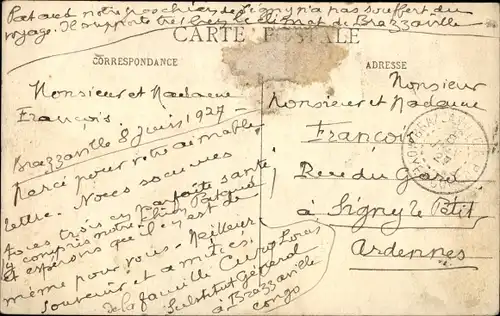 Pataud notre bon chien de Signy n'a pas souffert du
voyage. Il supporte très bien le climat de Brazzaville
CARTE POSTALE
CORRESPONDANCE
ADRESSE
Monsieur et Madame
François
Brazzaville 8 Juin 1927
Merci pour votre aimable
lettre. Nous sommes
tous trois en parfaite santé
y compris notre chien Pataud
et espérons qu'il en est de
même pour vous. Meilleur
souvenir et amitiés.
de la famille
Substitut Général
à Brazzaville
Congo
Monsieur
Monsieur et Madame
François
Rue du Gard
à Signy le Petit
Ardennes